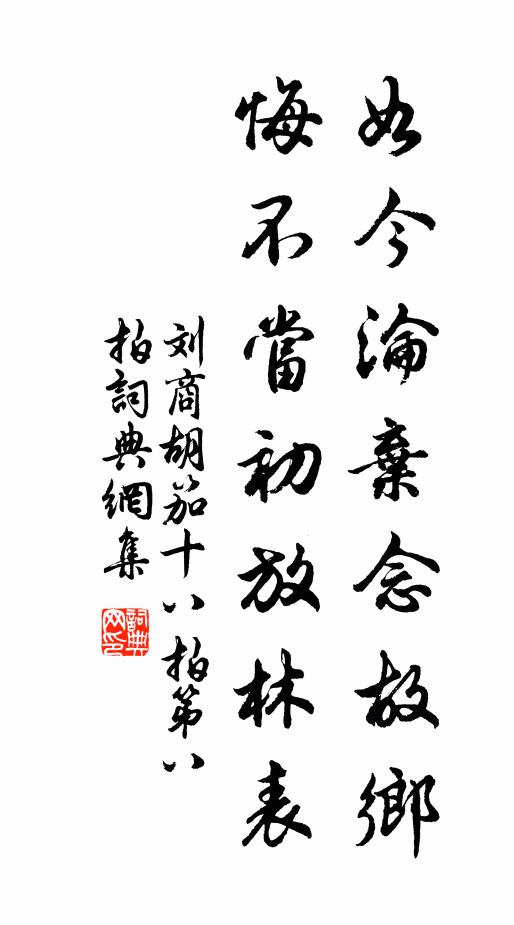 如今淪棄念故鄉
悔不當初放林表
刘商胡笳十八拍第八
拍詞典網集
詞典
网印